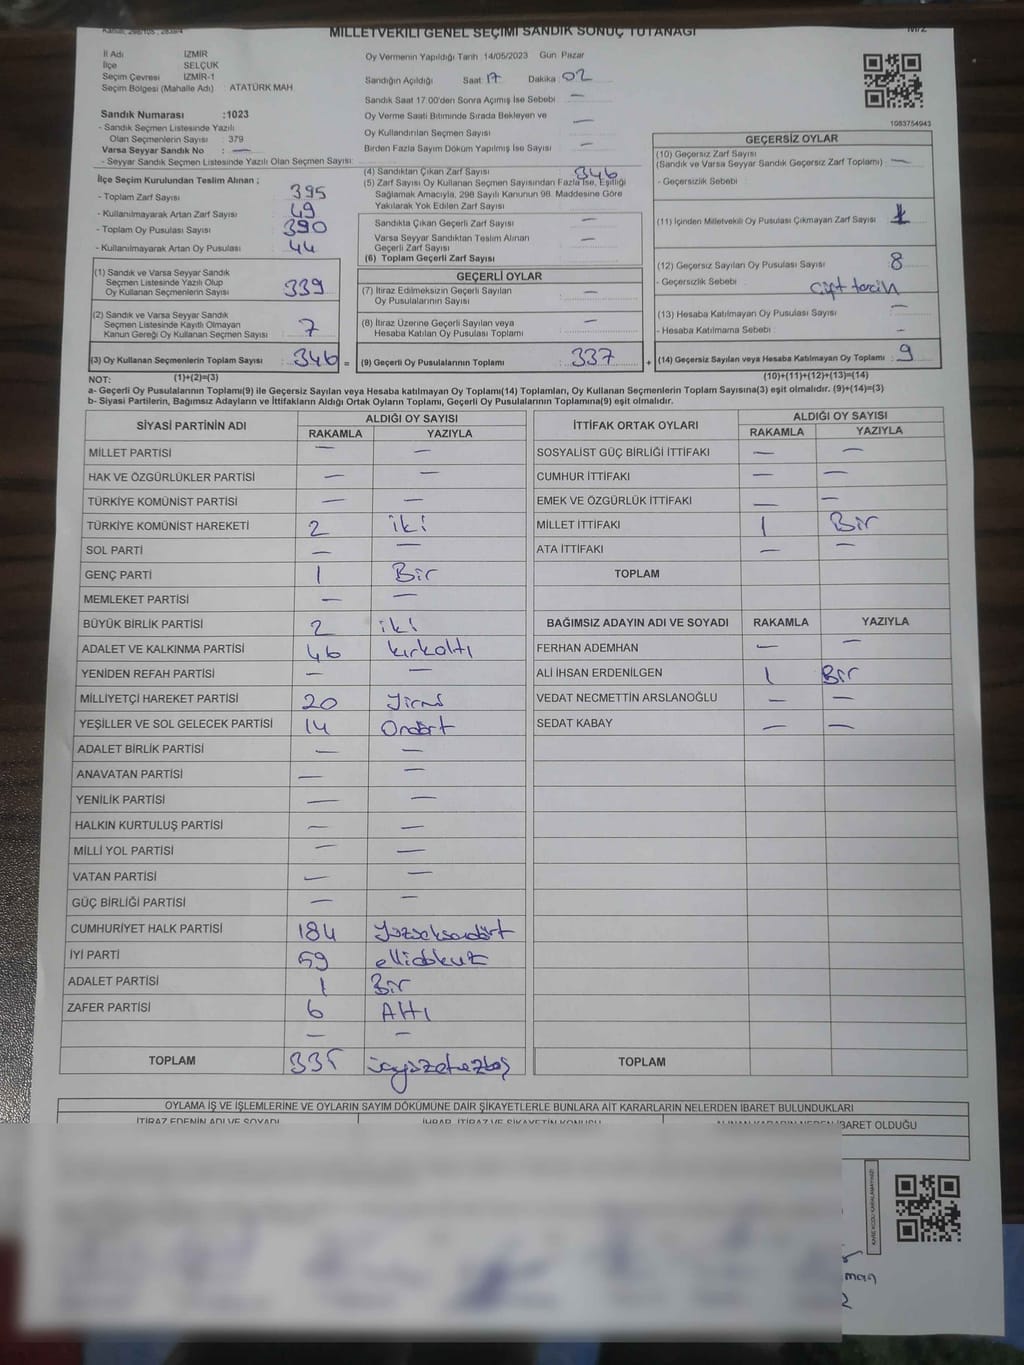 MİLLETVEKİLİ GENEL SEÇİMİ SANDIK SONUÇ TUTANAĞI
İl Adı İZMİR
İlçe SELÇUK
Seçim Çevresi İZMİR-1
Seçim Bölgesi (Mahalle Adı) ATATÜRK MAH
Sandık Numarası :1023
- Sandık Seçmen Listesinde Yazılı
Olan Seçmenlerin Sayısı : 379
Varsa Seyyar Sandık No : —
- Seyyar Sandık Seçmen Listesinde Yazılı Olan Seçmen Sayısı:
Oy Vermenin Yapıldığı Tarih 14/05/2023 Gün Pazar
Sandığın Açıldığı Saat 17 Dakika 02
Sandık Saat 17:00'den Sonra Açılmış İse Sebebi —
Oy Verme Saati Bitiminde Sırada Bekleyen ve
Oy Kullandırılan Seçmen Sayısı —
Birden Fazla Sayım Döküm Yapılmış İse Sayısı —
1083754943
İlçe Seçim Kurulundan Teslim Alınan ;
- Toplam Zarf Sayısı 395
- Kullanılmayarak Artan Zarf Sayısı 49
- Toplam Oy Pusulası Sayısı 390
- Kullanılmayarak Artan Oy Pusulası 44
(1) Sandık ve Varsa Seyyar Sandık
Seçmen Listesinde Yazılı Olup
Oy Kullanan Seçmenlerin Sayısı 339
(2) Sandık ve Varsa Seyyar Sandık
Seçmen Listesinde Kayıtlı Olmayan
Kanun Gereği Oy Kullanan Seçmen Sayısı 7
(3) Oy Kullanan Seçmenlerin Toplam Sayısı 346 =
(1)+(2)=(3)
(4) Sandıktan Çıkan Zarf Sayısı 346
(5) Zarf Sayısı Oy Kullanan Seçmen Sayısından Fazla İse, Eşitliği
Sağlamak Amacıyla, 298 Sayılı Kanunun 98. Maddesine Göre
Yakılarak Yok Edilen Zarf Sayısı
Sandıkta Çıkan Geçerli Zarf Sayısı —
Varsa Seyyar Sandıktan Teslim Alınan
Geçerli Zarf Sayısı —
(6) Toplam Geçerli Zarf Sayısı
GEÇERLİ OYLAR
(7) İtiraz Edilmeksizin Geçerli Sayılan
Oy Pusulasının Sayısı —
(8) İtiraz Üzerine Geçerli Sayılan veya
Hesaba Katılan Oy Pusulası Toplamı —
(9) Geçerli Oy Pusulalarının Toplamı 337 +
GEÇERSİZ OYLAR
(10) Geçersiz Zarf Sayısı
(Sandık ve Varsa Seyyar Sandık Geçersiz Zarf Toplamı) —
- Geçersizlik Sebebi
(11) İçinden Milletvekili Oy Pusulası Çıkmayan Zarf Sayısı 1
(12) Geçersiz Sayılan Oy Pusulası Sayısı 8
- Geçersizlik Sebebi Çift tercih
(13) Hesaba Katılmayan Oy Pusulası Sayısı —
- Hesaba Katılmama Sebebi —
(14) Geçersiz Sayılan veya Hesaba Katılmayan Oy Toplamı : 9
(10)+(11)+(12)+(13)=(14)
NOT:
a- Geçerli Oy Pusulalarının Toplamı(9) ile Geçersiz Sayılan veya Hesaba katılmayan Oy Toplamı(14) Toplamları, Oy Kullanan Seçmenlerin Toplam Sayısına(3) eşit olmalıdır. (9)+(14)=(3)
b- Siyasi Partilerin, Bağımsız Adayların ve İttifakların Aldığı Ortak Oyların Toplamı, Geçerli Oy Pusulalarının Toplamına(9) eşit olmalıdır.
SİYASİ PARTİNİN ADI ALDIĞI OY SAYISI
RAKAMLA YAZIYLA
MİLLET PARTİSİ — —
HAK VE ÖZGÜRLÜKLER PARTİSİ — —
TÜRKİYE KOMÜNİST PARTİSİ — —
TÜRKİYE KOMÜNİST HAREKETİ 2 iki
SOL PARTİ — —
GENÇ PARTİ 1 Bir
MEMLEKET PARTİSİ — —
BÜYÜK BİRLİK PARTİSİ 2 iki
ADALET VE KALKINMA PARTİSİ 46 kırkaltı
YENİDEN REFAH PARTİSİ — —
MİLLİYETÇİ HAREKET PARTİSİ 20 Yirmi
YEŞİLLER VE SOL GELECEK PARTİSİ 14 Ondört
ADALET BİRLİK PARTİSİ — —
ANAVATAN PARTİSİ — —
YENİLİK PARTİSİ — —
HALKIN KURTULUŞ PARTİSİ — —
MİLLİ YOL PARTİSİ — —
VATAN PARTİSİ — —
GÜÇ BİRLİĞİ PARTİSİ — —
CUMHURİYET HALK PARTİSİ 184 Yüzseksendört
İYİ PARTİ 59 ellidokuz
ADALET PARTİSİ 1 Bir
ZAFER PARTİSİ 6 Altı
— —
TOPLAM 335 üçyüzotuzbeş
İTTİFAK ORTAK OYLARI ALDIĞI OY SAYISI
RAKAMLA YAZIYLA
SOSYALİST GÜÇ BİRLİĞİ İTTİFAKI — —
CUMHUR İTTİFAKI — —
EMEK VE ÖZGÜRLÜK İTTİFAKI — —
MİLLET İTTİFAKI 1 Bir
ATA İTTİFAKI — —
TOPLAM
BAĞIMSIZ ADAYIN ADI VE SOYADI RAKAMLA YAZIYLA
FERHAN ADEMHAN — —
ALİ İHSAN ERDENİLGEN 1 Bir
VEDAT NECMETTİN ARSLANOĞLU — —
SEDAT KABAY — —
TOPLAM
OYLAMA İŞ VE İŞLEMLERİNE VE OYLARIN SAYIM DÖKÜMÜNE DAİR ŞİKAYETLERLE BUNLARA AİT KARARLARIN NELERDEN İBARET BULUNDUKLARI
İTİRAZ EDENİN ADI VE SOYADI İHBAR, İTİRAZ VE ŞİKAYETİN KONUSU ALINAN KARARIN NEDEN İBARET OLDUĞU
KARE KODU KARALAMAYINIZ!